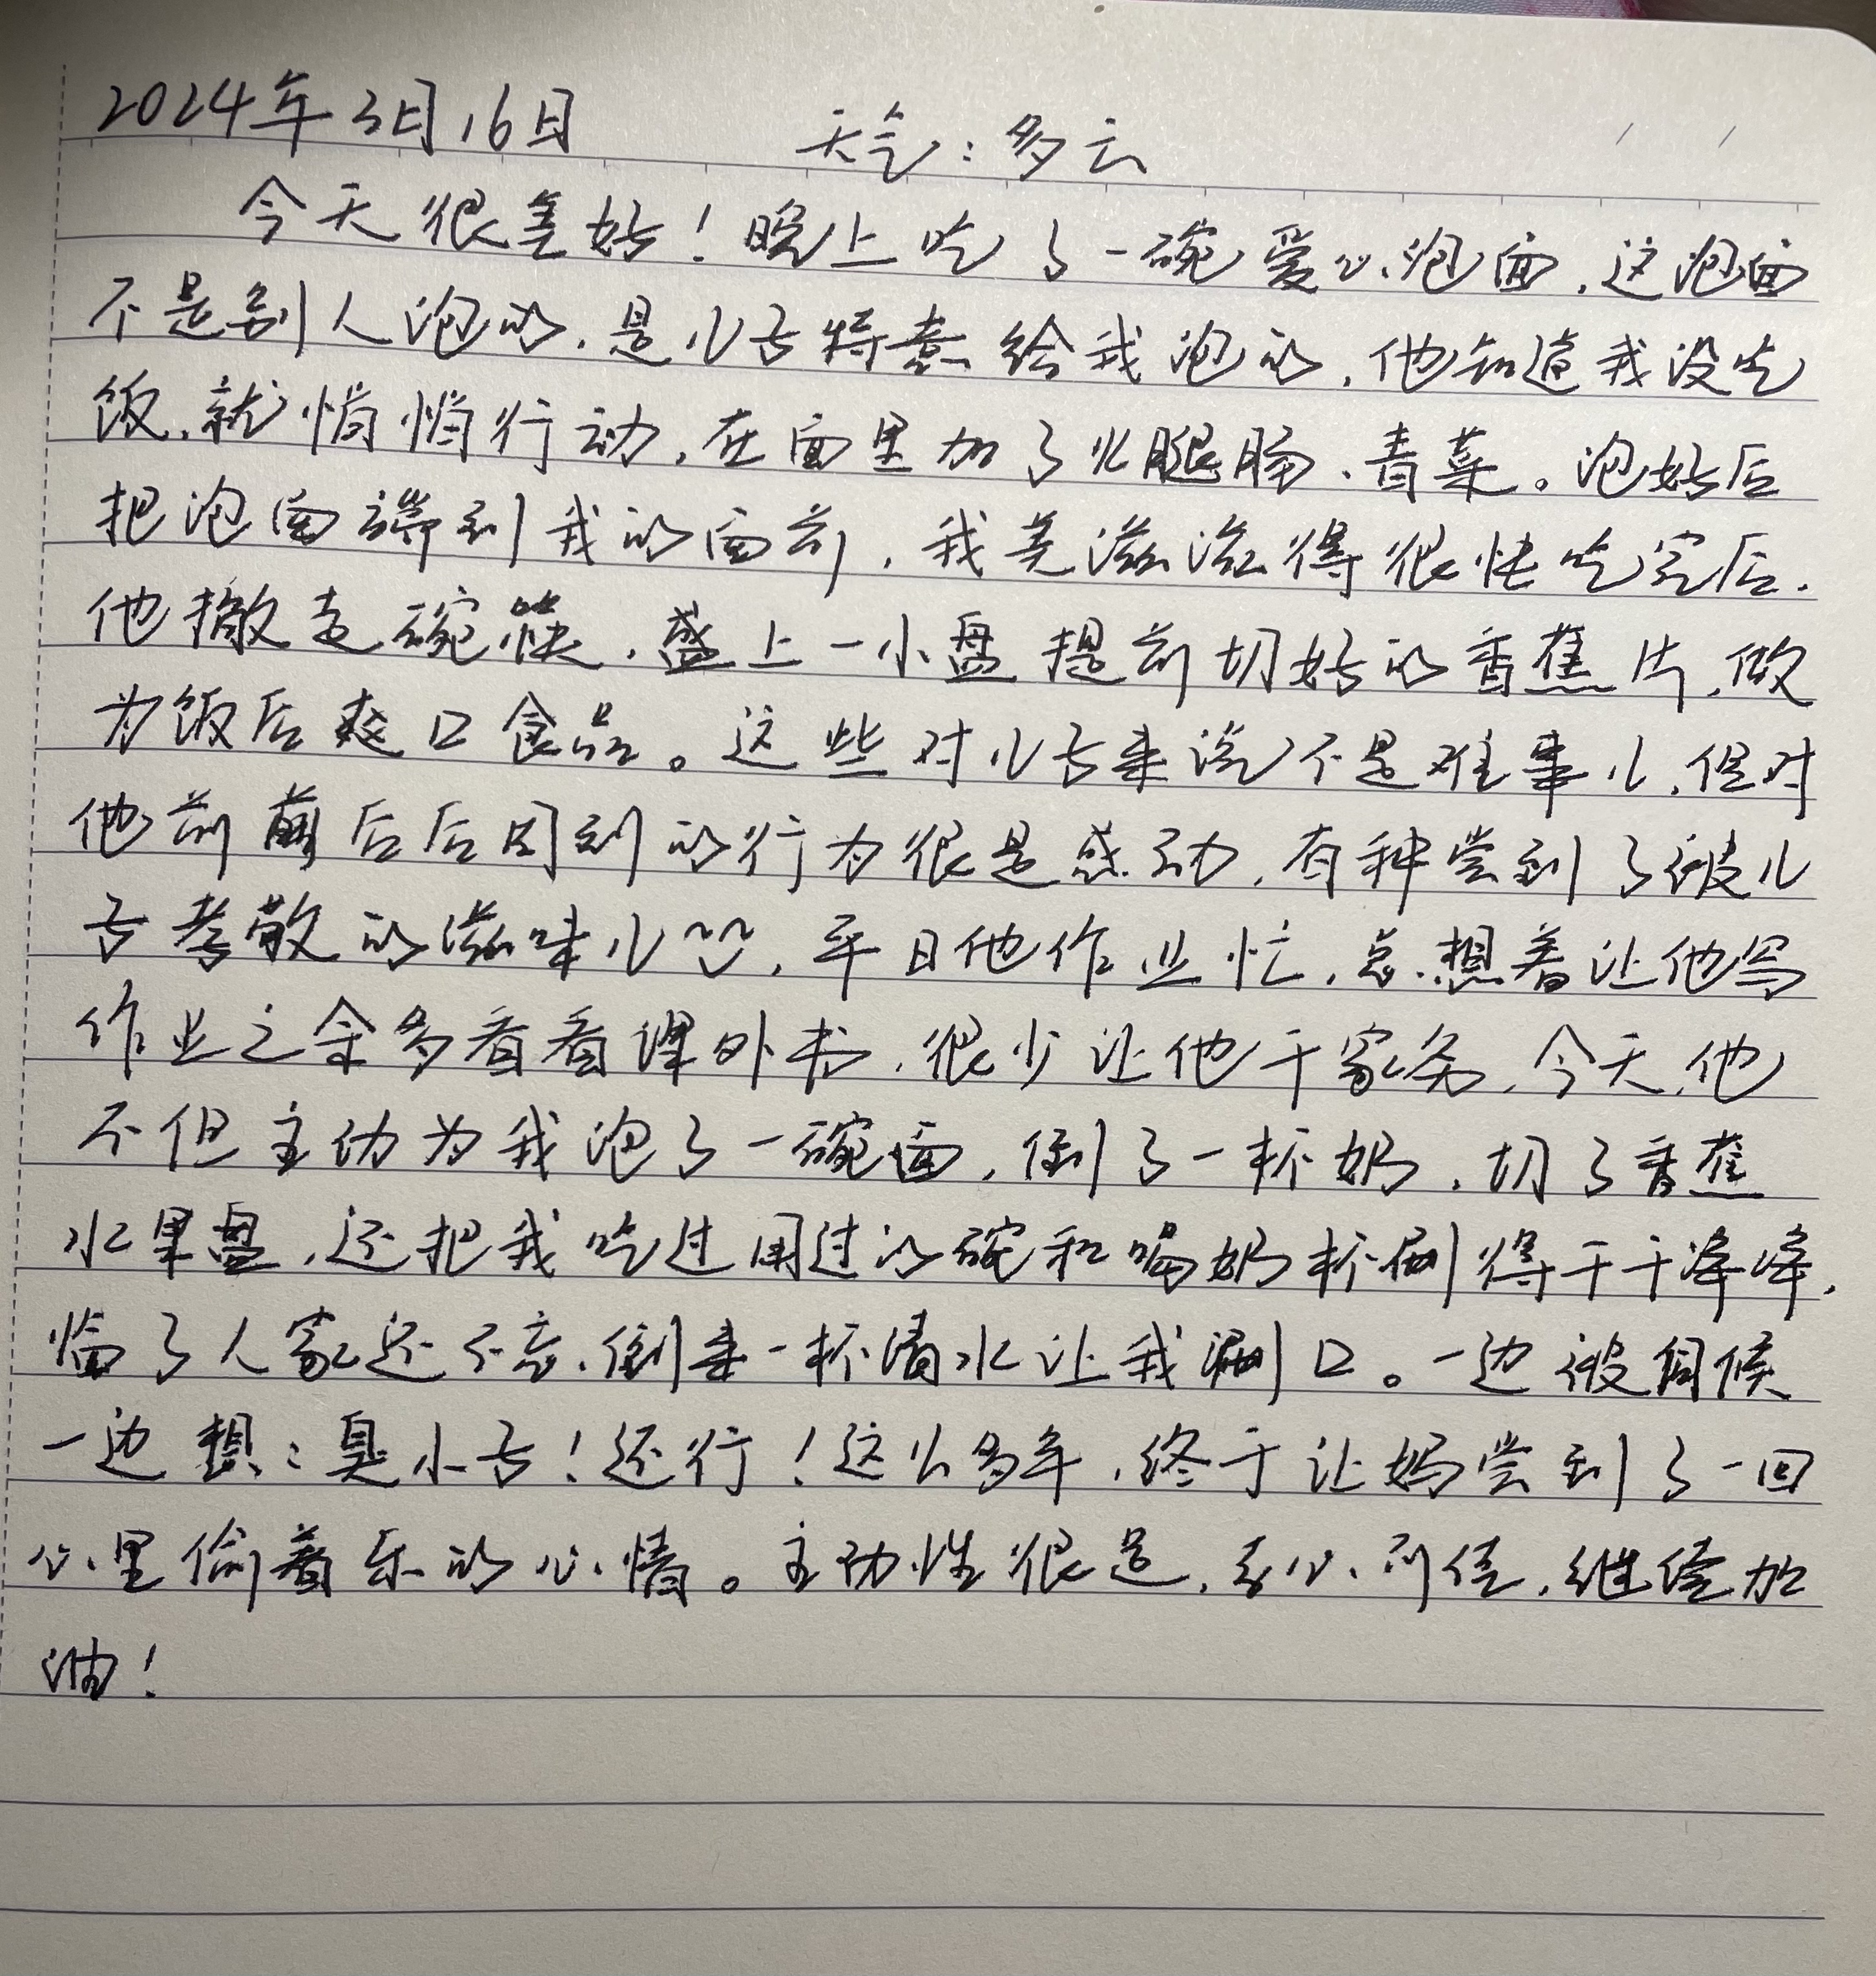 2024年3月16日 天气:多云
今天很美好!晚上吃了一碗爱心泡面,这泡面
不是别人泡的,是儿子特意给我泡的,他知道我没吃
饭,就悄悄行动,在面里加了火腿肠、青菜。泡好后
把泡面端到我的面前,我美滋滋得很快吃完后,
他撤走碗筷,盛上一小盘提前切好的香蕉片,做
为饭后爽口食品。这些对儿子来说不是难事儿,但对
他前前后后周到的行为很是感动,有种尝到了被儿
子孝敬的滋味儿~~,平日他作业忙,总想着让他写
作业之余多看看课外书,很少让他干家务,今天,他
不但主动为我泡了一碗面,倒了一杯奶,切了香蕉
水果盘,还把我吃过用过的碗和喝奶杯刷得干干净净,
临了人家还不忘倒来一杯清水让我涮口。一边被伺候
一边想:臭小子!还行!这么多年,终于让妈尝到了一回
心里偷着乐的心情。主动性很足,孝心可佳,继续加
油!